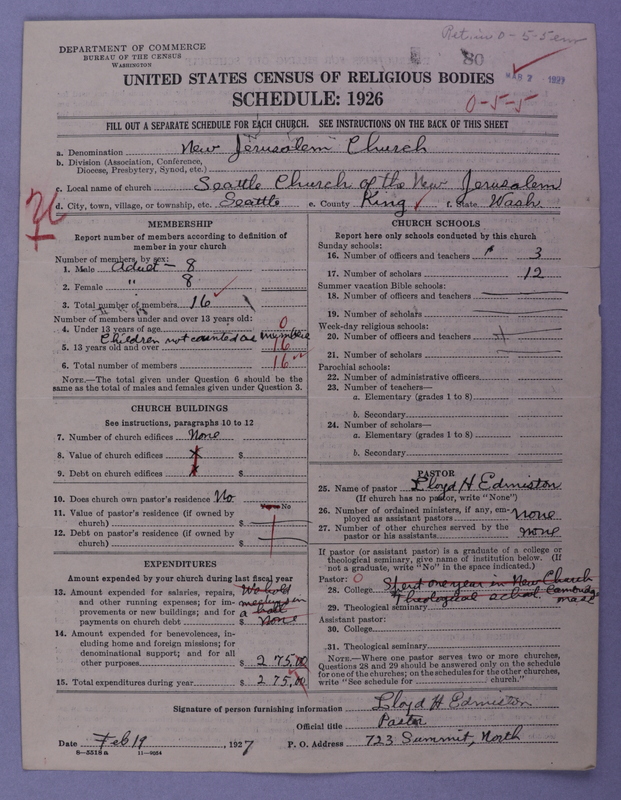 DEPARTMENT OF COMMERCE
BUREAU OF THE CENSUS
WASHINGTON
80
MAR 7 1927
UNITED STATES CENSUS OF RELIGIOUS BODIES
SCHEDULE: 1926
0-5-5
FILL OUT A SEPARATE SCHEDULE FOR EACH CHURCH. SEE INSTRUCTIONS ON THE BACK OF THIS SHEET
a. Denomination New Jerusalem Church
b. Division (Association, Conference,
Diocese, Presbytery, Synod, etc.)
c. Local name of church Seattle Church of the New Jerusalem
d. City, town, village, or township, etc. Seattle e. County King f. State Wash.
MEMBERSHIP
Report number of members according to definition of
member in your church
Number of members, by sex:
1. Male Adult – 8
2. Female " 8
3. Total number of members 16
Number of members under and over 13 years old:
4. Under 13 years of age 0
Children not counted as members
5. 13 years old and over 16
6. Total number of members 16
NOTE.—The total given under Question 6 should be the
same as the total of males and females given under Question 3.
CHURCH BUILDINGS
See instructions, paragraphs 10 to 12
7. Number of church edifices None
8. Value of church edifices $
9. Debt on church edifices $
10. Does church own pastor's residence No
Yes or No
11. Value of pastor's residence (if owned by
church) $
12. Debt on pastor's residence (if owned by
church) $
EXPENDITURES
Amount expended by your church during last fiscal year
13. Amount expended for salaries, repairs,
and other running expenses; for im-
provements or new buildings; and for
payments on church debt $ None
We hold
meetings in
a hall
14. Amount expended for benevolences, in-
cluding home and foreign missions; for
denominational support; and for all
other purposes $ 275,00
15. Total expenditures during year $ 275,00
CHURCH SCHOOLS
Report here only schools conducted by this church
Sunday schools:
16. Number of officers and teachers 3
17. Number of scholars 12
Summer vacation Bible schools:
18. Number of officers and teachers
19. Number of scholars
Week-day religious schools:
20. Number of officers and teachers
21. Number of scholars
Parochial schools:
22. Number of administrative officers
23. Number of teachers—
a. Elementary (grades 1 to 8)
b. Secondary
24. Number of scholars—
a. Elementary (grades 1 to 8)
b. Secondary
PASTOR
25. Name of pastor Lloyd H Edmiston
(If church has no pastor, write "None")
26. Number of ordained ministers, if any, em-
ployed as assistant pastors none
27. Number of other churches served by the
pastor or his assistants none
If pastor (or assistant pastor) is a graduate of a college or
theological seminary, give name of institution below. (If
not a graduate, write "No" in the space indicated.)
Pastor: 0
28. College Spent one year in New Church
Theological school Cambridge
Mass
29. Theological seminary
Assistant pastor:
30. College
31. Theological seminary
NOTE.—Where one pastor serves two or more churches,
Questions 28 and 29 should be answered only on the schedule
for one of the churches; on the schedules for the other churches,
write "See schedule for church."
Signature of person furnishing information Lloyd H Edmiston
Official title Pastor
Date Feb 19, 1927 P. O. Address 723 Summit, North
8—5518 a 11—9024